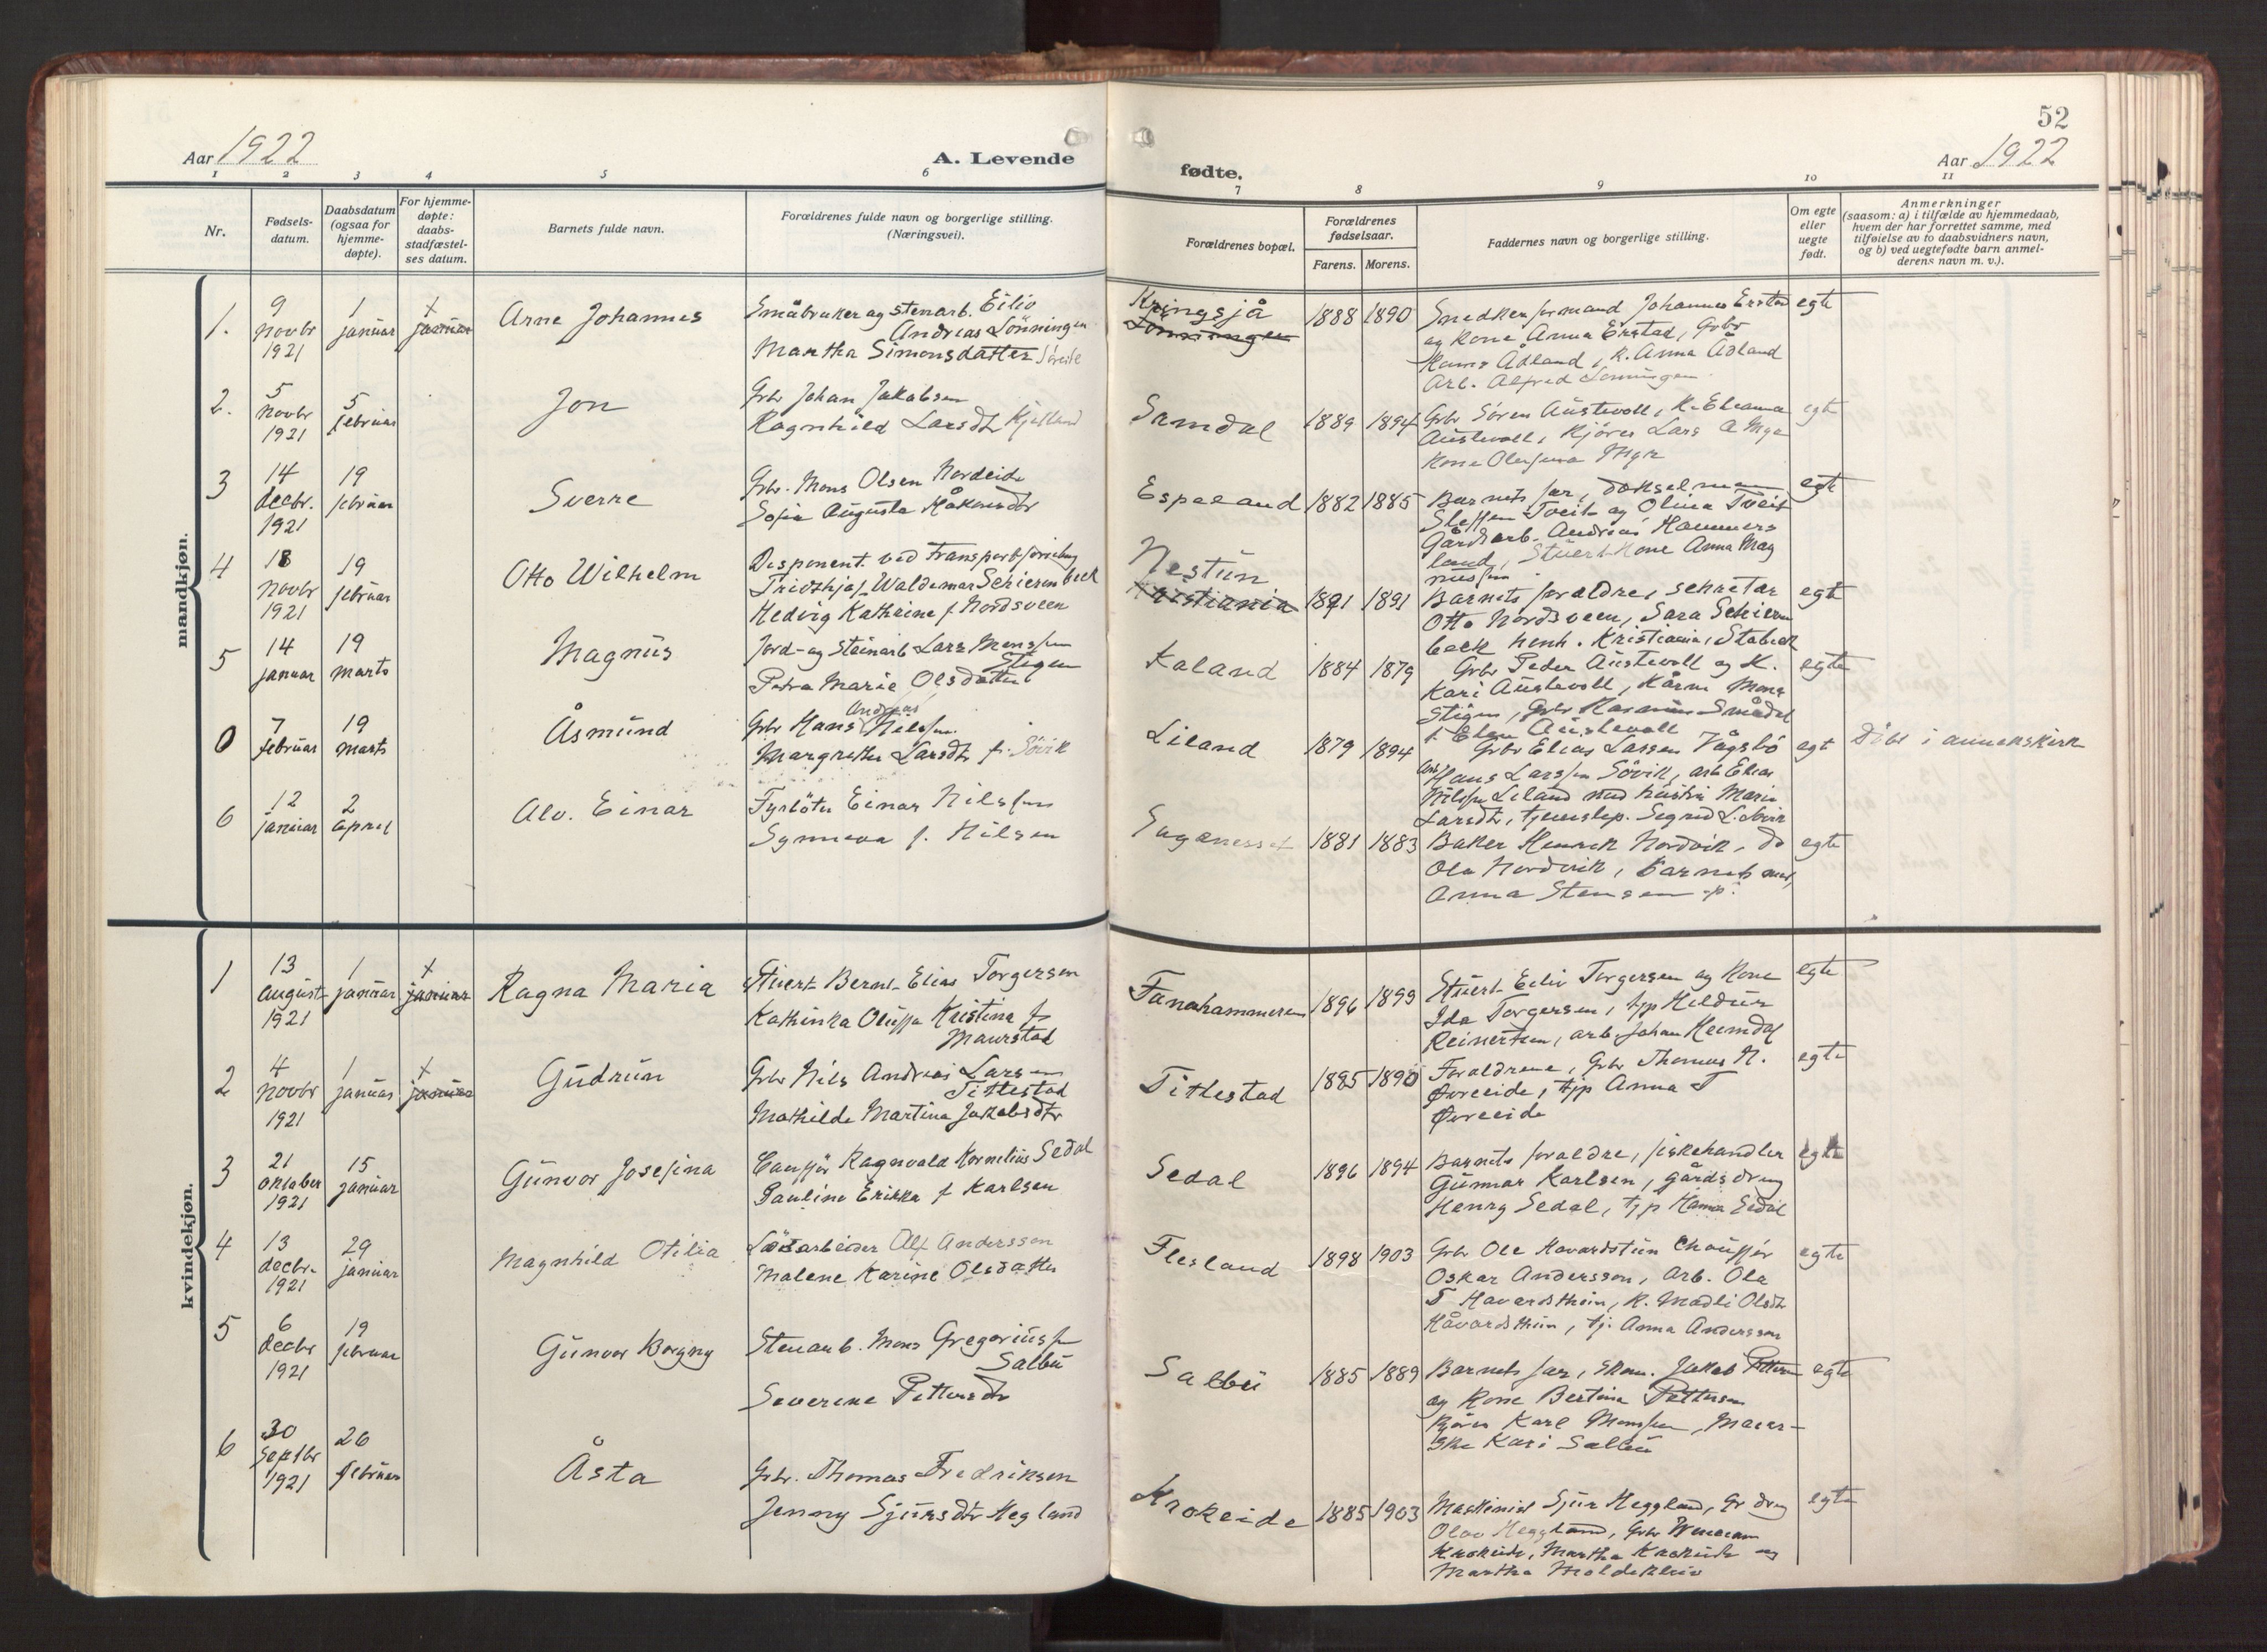 52
Aar 1922
A. Levende
fødte.
Aar 1922
1 2 3 4 5 6 7 8 9 10 11
Nr.
Fødsels-
datum.
Daabsdatum
(ogsaa for
hjemme-
døpte).
For hjemme-
døpte:
daabs-
stadfæstel-
ses datum.
Barnets fulde navn.
Forældrenes fulde navn og borgerlige stilling.
(Næringsvei).
Forældrenes bopæl.
Forældrenes
fødselsaar.
Farens. Morens.
Faddernes navn og borgerlige stilling.
Om egte
eller
uegte
født.
Anmerkninger
(saasom: a) i tilfælde av hjemmedaab,
hvem der har forrettet samme, med
tilføielse av to daabsvidners navn,
og b) ved uegtefødte barn anmel-
derens navn m. v.).
mandkjøn.
1.
9
novbr
1921
1
januar
januar
Arne Johannes
Småbruker og stenarb. Eiliv
Andreas Lønningen
Martha Simonsdatter
Kringsjå
Lønningen
1888 1890
Snedkerformand Johannes Erstad
og kone Anna Erstad, Grbr
Hans Ådland, K. Anna Ådland
Arb. Alfred Lønningen
egte
2.
5
novbr
1921
5
februar
Jon
Grbr Johan Jakobsen
Ragnhild Larsdtr
Samdal
1889 1894
Grbr Søren Austevoll, K.
Austevoll, Kjører Lars
kone
egte
3
14
decbr.
1921
19
februar
Sverre
Grbr. Mons Olsen Nordeide
Sofie Augusta Håkonsdtr
Espeland
1882 1885
Barnets far,
Steffen Tveit og Olina Tveit
Gårdsarb. Andreas Hammers
land, Stuert kone Anna Mag
nussen
egte
4
18
novbr
1921
19
februar
Otto Wilhelm
Disponent ved Transportforsikring
Waldemar Schierenbeck
Hedvig Kathrine f. Nordsveen
Nestun
Kristiania
1891 1891
Barnets forældre, sekretær
Otto Nordsveen, Sara Schieren
beck henh. Kristiania, Stabæk
egte
5
14
januar
19
marts
Magnus
Jord- og Steinarb Lars Monssen
Stigen
Petra Marie Olsdatter
Kaland
1884 1879
Grbr Peder Austevoll og K.
Kari Austevoll, Mons
Stigen, Grbr
f. Austevoll
egte
0
7
februar
19
marts
Åsmund
Grbr Hans Andreas Nilssen
Margrethe Larsdtr f. Søvik
Liland
1879 1894
Grbr Elias Lassen Vågsbø
Hans Larssen Søvik, arb Elias
Nilssen Liland med hustru Marie
Larsdtr, tjenestep. Sigrid L. Søvik
egt
Døbt i annekskirk
6
12
januar
2
april
Alv. Einar
Fyrbøter Einar Nilssen
Synneva f. Nilsen
1881 1883
Baker Henrik Nordvik, do
Ola Nordvik, Barnets mor,
Anna Stensen
egte
kvindekjøn.
1
13
august
1921
1
januar
januar
Ragna Maria
Stuert Bernt Elias Torgersen
Kathinka Oluffa Kristina f
Maurstad
Fanahammeren
1896 1899
Stuert Eiliv Torgersen og kone
Ida Torgersen, tjp Hildur
Reinertsen, arb Johan Heimdal
egte
2
4
novbr
1921
1
januar
januar
Gudrun
Grbr Nils Andreas Larsen
Titlestad
Mathilde Martina Jakobsdtr
Titlestad
1885 1890
Forældrene, Grbr Thomas N.
Øvreeide, tjp Anna T
Øvreeide
egte
3
21
oktober
1921
15
januar
Gunvor Josefina
Ragnvald Kornelius Sedal
Pauline Erikka f Karlsen
Sedal
1896 1894
Barnets forældre, fiskehandler
Gunnar Karlsen, gårdsdreng
Henry Sedal, tjp Hanna Sedal
egte
4
13
decbr.
1921
29
januar
Magnhild Otilia
Løsarbeider Alf Andersson
Malene Karine Olsdatter
Flesland
1898 1903
Grbr Ole Havardstun Chauffør
Oskar Andersson, Arb. Ola
T Havardsthun, K. Madli Olsdtr
Håvardsthun, tj. Anna Andersson
egte
5
6
decbr
1921
19
februar
Gunvor Borgny
Stenarb. Mons Gregoriussen
Salbu
Severine Pettersdtr
Salbu
1885 1889
Barnets far, Jakob Pettersen
og kone Bertina Pettersen
Karl Monssen,
Kari Salbu
egte
6
30
septbr
1921
26
februar
Åsta
Grbr. Thomas Fredriksen
Jenny Sjursdtr Hegland
Krokeide
1885 1903
Maskinist Sjur Heggland, Gr dreng
Olav Heggland, Grbr
Krokeide, Martha Krokeide og
Martha Moldekleiv
egte